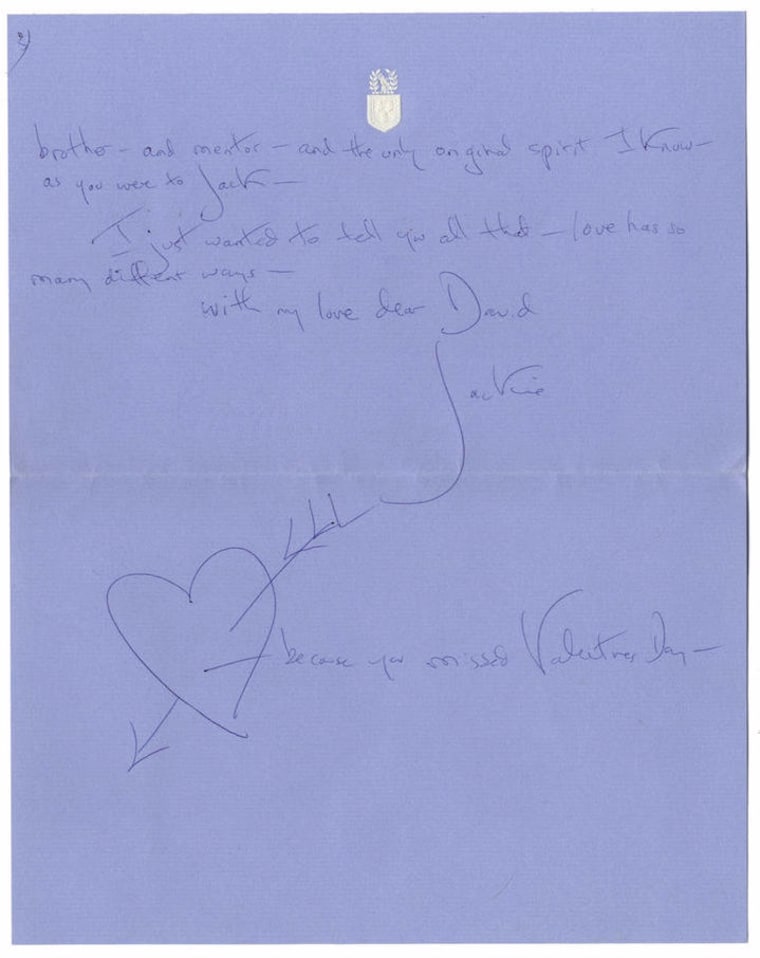 2/
brother – and mentor – and the only original spirit I know –
as you were to Jack –
I just wanted to tell you all that – love has so
many different ways –
with my love dear David
Jackie
because you missed Valentines Day –